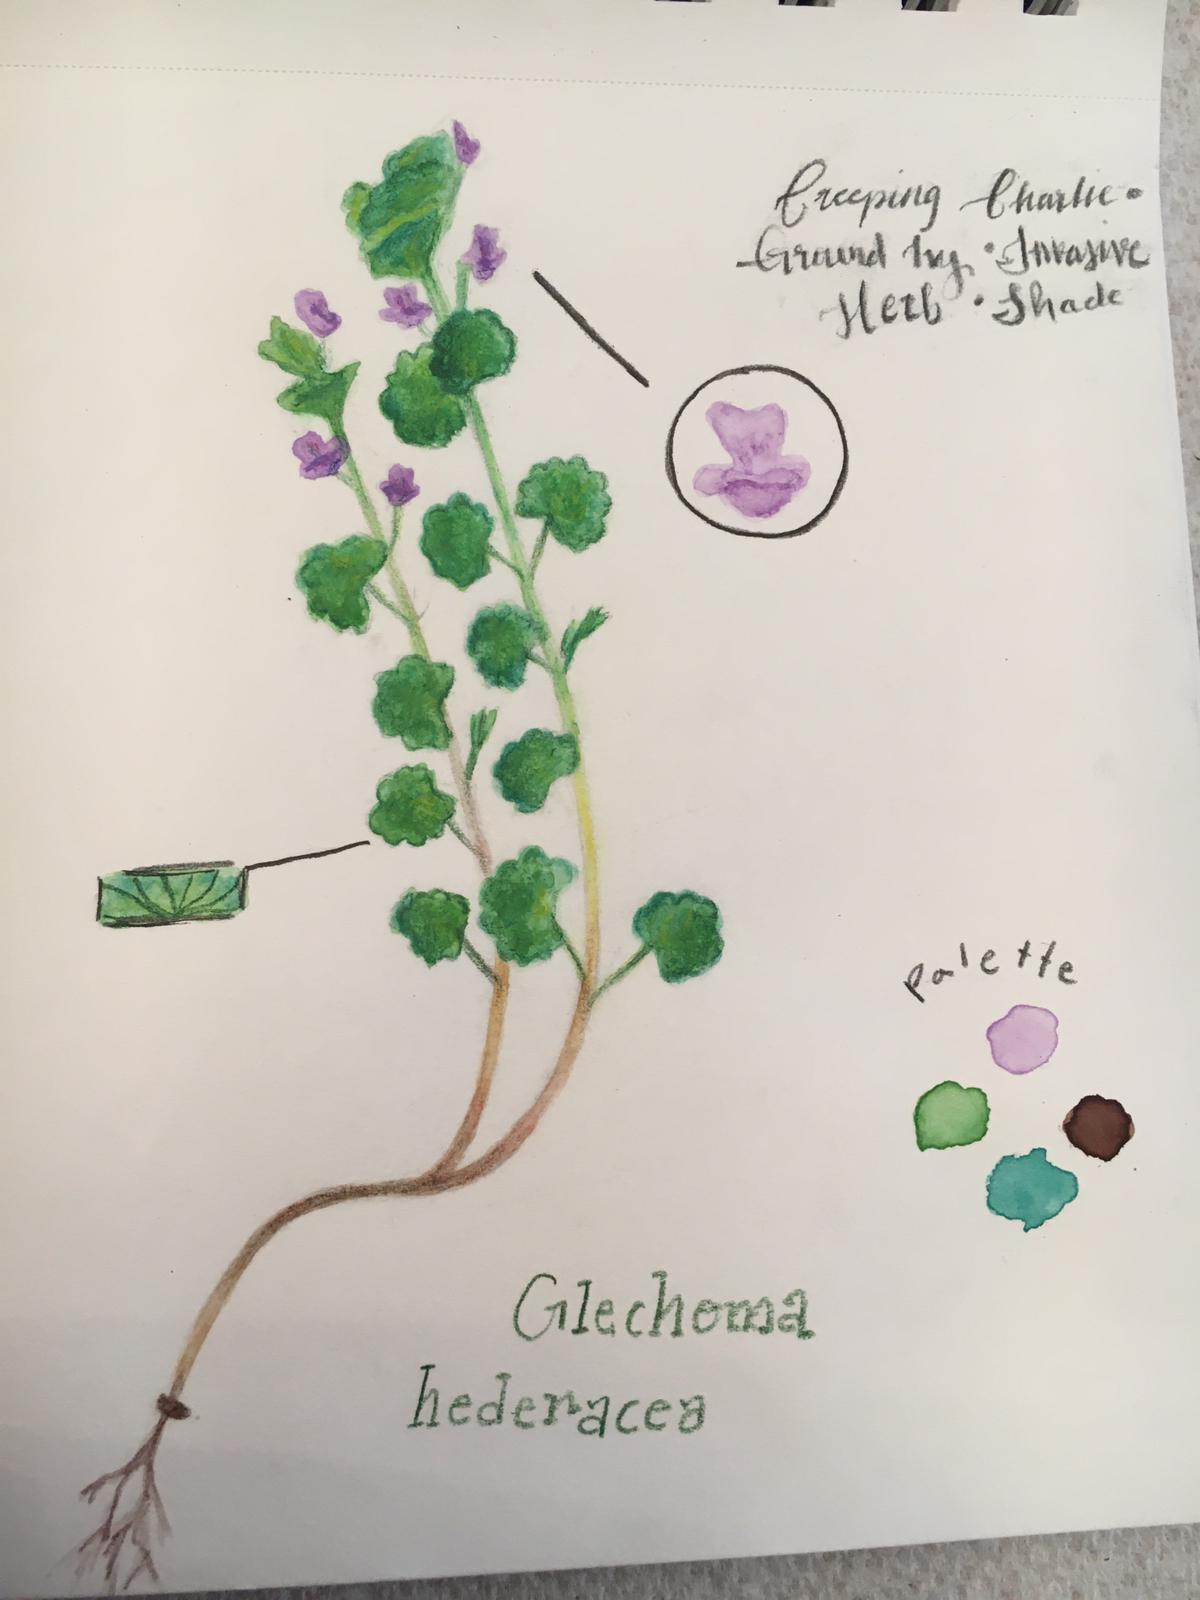 Creeping Charlie •
Ground Ivy • Invasive
Herb • Shade
palette
Glechoma
hederacea